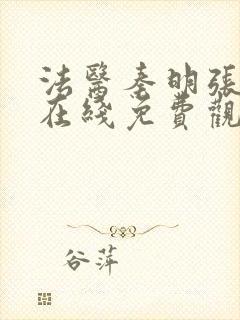 法醫秦明張
在綫免費觀
谷萍